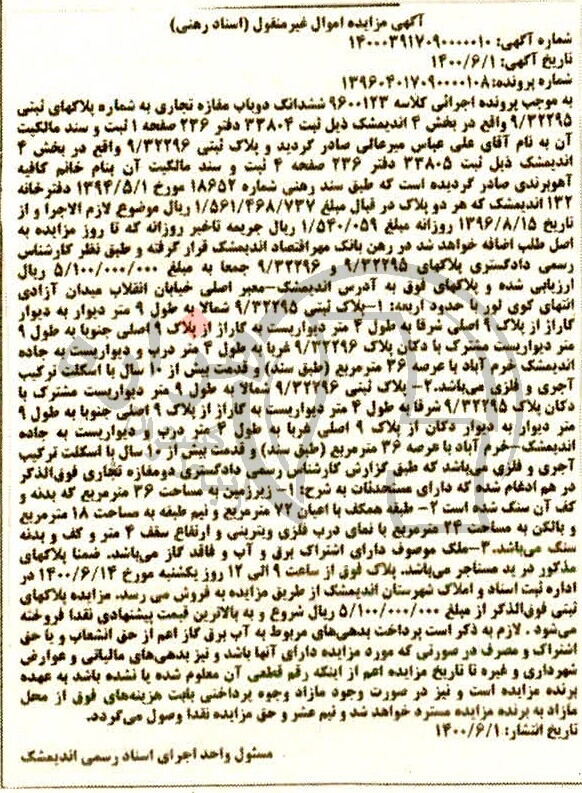 آگهی مزایده اموال غیرمنقول (اسناد رهنی)
شماره آگهی: ۱۴۰۰۰۳۹۱۷۰۹۰۰۰۰۰۱۰
تاریخ آگهی: ۱۴۰۰/۶/۱
شماره پرونده: ۱۳۹۶۰۴۰۱۷۰۹۰۰۰۰۱۰۸
به موجب پرونده اجرائی کلاسه ۹۶۰۰۱۲۳ ششدانگ دوباب مغازه تجاری به شماره پلاکهای ثبتی
۹/۳۲۲۹۵ واقع در بخش ۴ اندیمشک ذیل ثبت ۳۳۸۰۴ دفتر ۲۳۶ صفحه ۱ ثبت و سند مالکیت
آن به نام آقای علی عباس میرعالی صادر گردید و پلاک ثبتی ۹/۳۲۲۹۶ واقع در بخش ۴
اندیمشک ذیل ثبت ۳۳۸۰۵ دفتر ۲۳۶ صفحه ۴ ثبت و سند مالکیت آن بنام خانم کافیه
آهوبرندی صادر گردیده است که طبق سند رهنی شماره ۱۸۶۵۲ مورخ ۱۳۹۴/۵/۱ دفترخانه
۱۳۲ اندیمشک که هر دو پلاک در قبال مبلغ ۱/۵۶۱/۴۶۸/۷۳۷ ریال موضوع لازم الاجرا و از
تاریخ ۱۳۹۶/۸/۱۵ روزانه مبلغ ۱/۵۴۰/۰۵۹ ریال جریمه تاخیر روزانه که تا روز مزایده به
اصل طلب اضافه خواهد شد در رهن بانک مهراقتصاد اندیمشک قرار گرفته و طبق نظر کارشناس
رسمی دادگستری پلاکهای ۹/۳۲۲۹۵ و ۹/۳۲۲۹۶ جمعا به مبلغ ۵/۱۰۰/۰۰۰/۰۰۰ ریال
ارزیابی شده و پلاکهای فوق به آدرس اندیمشک-معبر اصلی خیابان انقلاب میدان آزادی
انتهای کوی لور با حدود اربعه: ۱-پلاک ثبتی ۹/۳۲۲۹۵ شمالا به طول ۹ متر دیوار به دیوار
گاراژ از پلاک ۹ اصلی شرقا به طول ۴ متر دیواریست به گاراژ از پلاک ۹ اصلی جنوبا به طول ۹
متر دیواریست مشترک با دکان پلاک ۹/۳۲۲۹۶ غربا به طول ۴ متر درب و دیواریست به جاده
اندیمشک خرم آباد با عرصه ۳۶ مترمربع (طبق سند) و قدمت بیش از ۱۰ سال با اسکلت ترکیب
آجری و فلزی می‌باشد.۲- پلاک ثبتی ۹/۳۲۲۹۶ شمالا به طول ۹ متر دیواریست مشترک با
دکان پلاک ۹/۳۲۲۹۵ شرقا به طول ۴ متر دیواریست به گاراژ از پلاک ۹ اصلی جنوبا به طول ۹
متر دیوار به دیوار دکان از پلاک ۹ اصلی غربا به طول ۴ متر درب و دیواریست به جاده
اندیمشک-خرم آباد با عرصه ۳۶ مترمربع (طبق سند) و قدمت بیش از ۱۰ سال با اسکلت ترکیب
آجری و فلزی می‌باشد که طبق گزارش کارشناس رسمی دادگستری دومغازه تجاری فوق‌الذکر
در هم ادغام شده که دارای مستحدثات به شرح: ۱- زیرزمین به مساحت ۳۶ مترمربع که بدنه و
کف آن سنگ شده است ۲- طبقه همکف با اعیان ۷۲ مترمربع و نیم طبقه به مساحت ۱۸ مترمربع
و بالکن به مساحت ۲۴ مترمربع با نمای درب فلزی ویترینی و ارتفاع سقف ۴ متر و کف و بدنه
سنگ می‌باشد.۳-ملک موصوف دارای اشتراک برق و آب و فاقد گاز می‌باشد. ضمنا پلاکهای
مذکور در ید مستاجر می‌باشد. پلاک فوق از ساعت ۹ الی ۱۲ روز یکشنبه مورخ ۱۴۰۰/۶/۱۴ در
اداره ثبت اسناد و املاک شهرستان اندیمشک از طریق مزایده به فروش می رسد. مزایده پلاکهای
ثبتی فوق‌الذکر از مبلغ ۵/۱۰۰/۰۰۰/۰۰۰ ریال شروع و به بالاترین قیمت پیشنهادی نقدا فروخته
می‌شود . لازم به ذکر است پرداخت بدهی‌های مربوط به آب برق گاز اعم از حق انشعاب و یا حق
اشتراک و مصرف در صورتی که مورد مزایده دارای آنها باشد و نیز بدهی‌های مالیاتی و عوارض
شهرداری و غیره تا تاریخ مزایده اعم از اینکه رقم قطعی آن معلوم شده یا نشده باشد به عهده
برنده مزایده است و نیز در صورت وجود مازاد وجوه پرداختی بابت هزینه‌های فوق از محل
مازاد به برنده مزایده مسترد خواهد شد و نیم عشر و حق مزایده نقدا وصول می‌گردد.
تاریخ انتشار: ۱۴۰۰/۶/۱
مسئول واحد اجرای اسناد رسمی اندیمشک